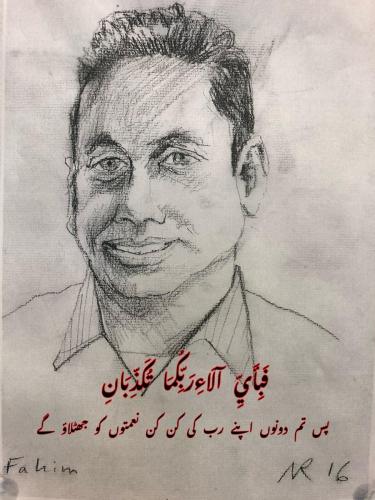 فَبِأَيِّ آلَاءِ رَبِّكُمَا تُكَذِّبَانِ
پس تم دونوں اپنے رب کی کن کن نعمتوں کو جھٹلاؤ گے
Fahim NR 16